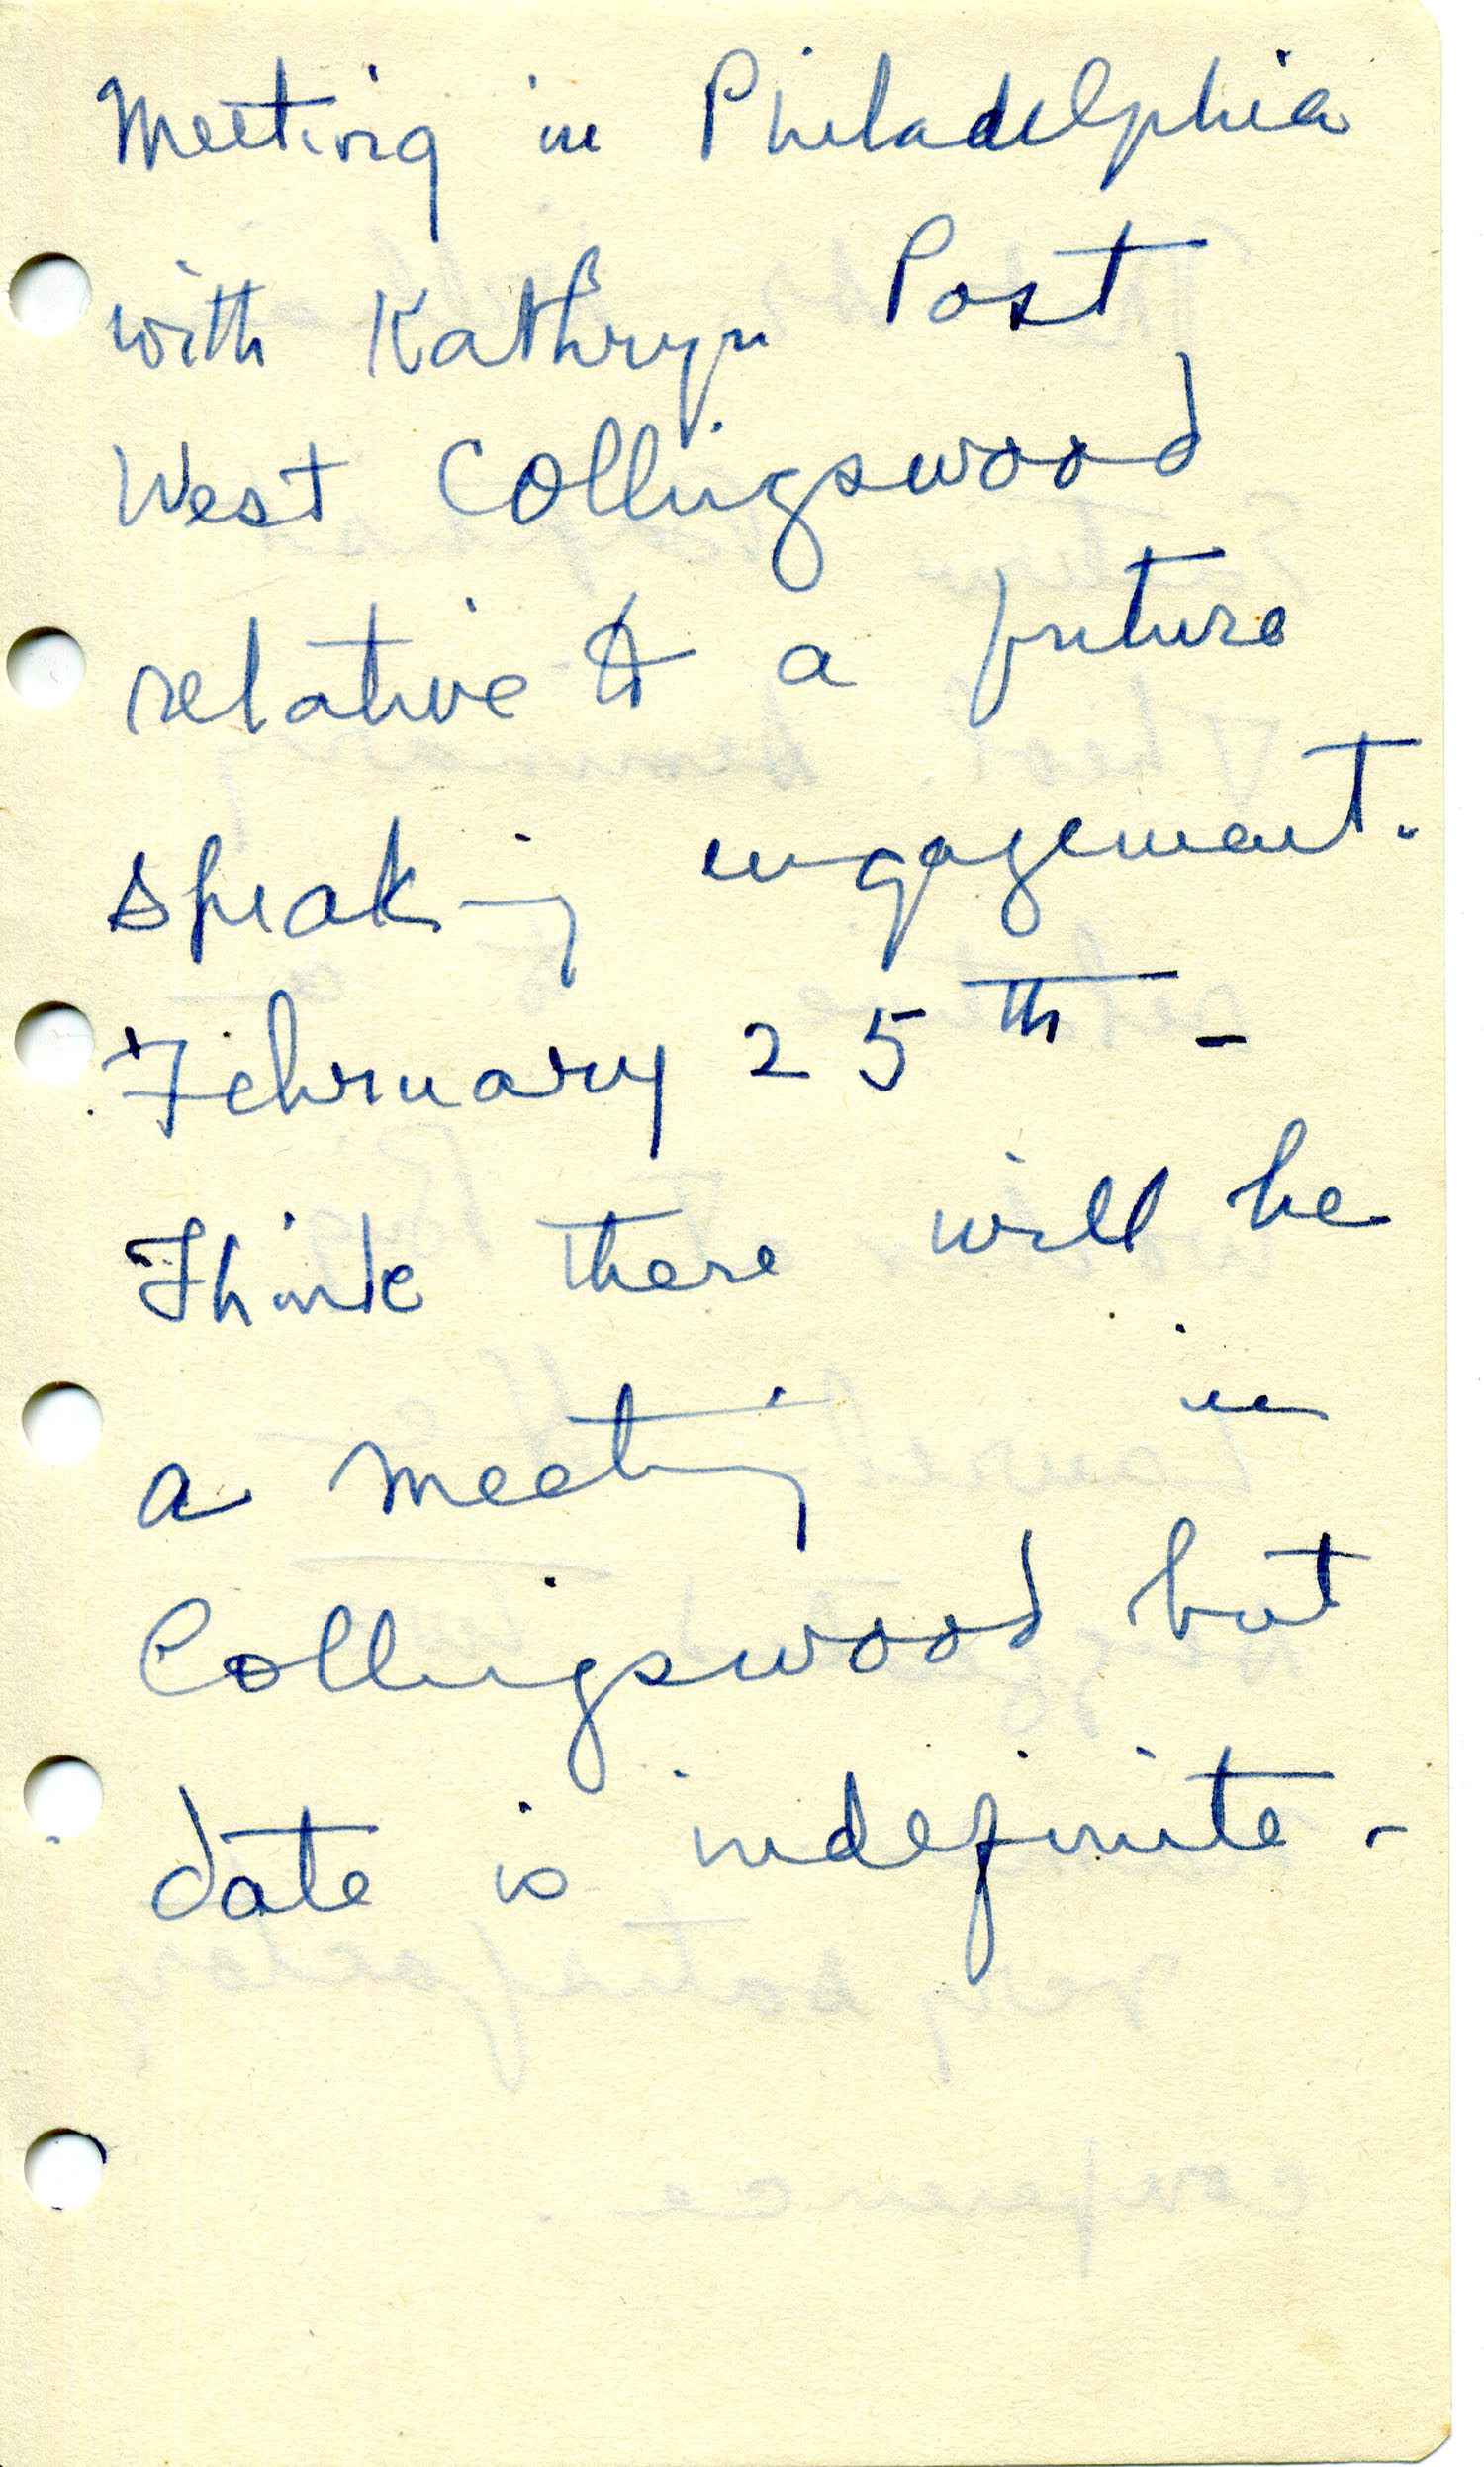 Meeting in Philadelphia
with Kathryn Post
West Collingswood
relative to a future
speaking engagement.
February 25th -
Think there will be
a meeting in
Collingswood but
date is indefinite -